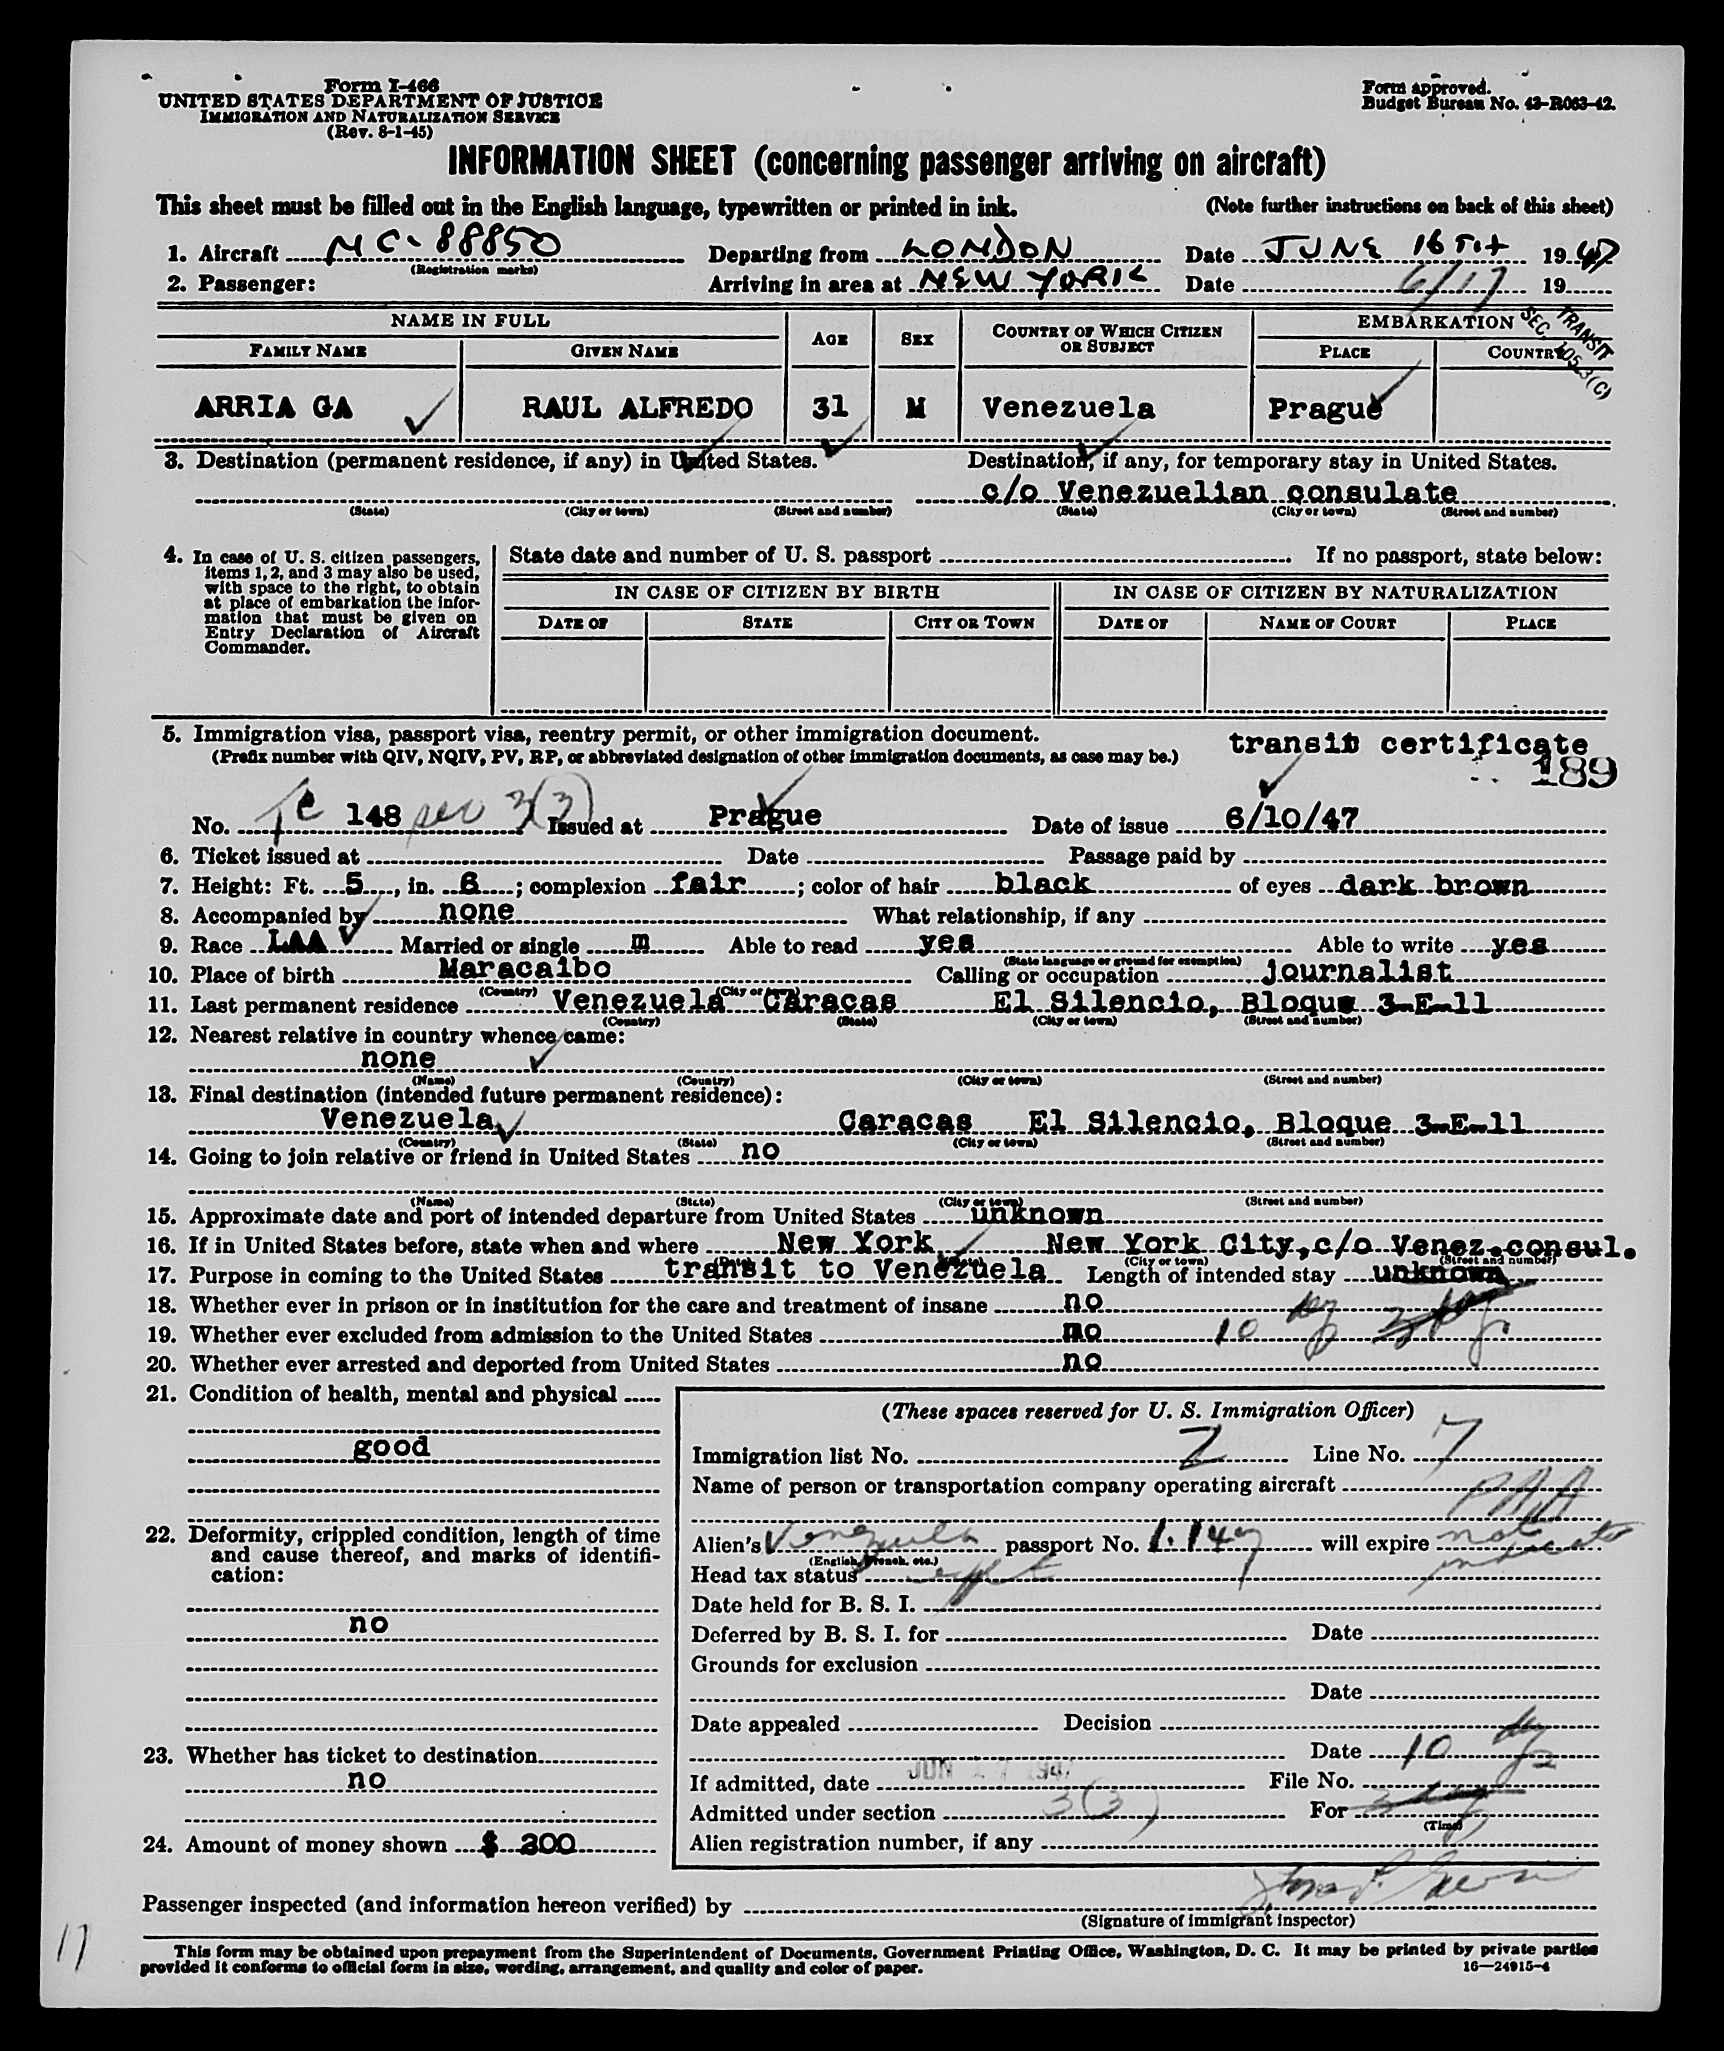 Form I-466
UNITED STATES DEPARTMENT OF JUSTICE
IMMIGRATION AND NATURALIZATION SERVICE
(Rev. 8-1-45)
Form approved.
Budget Bureau No. 43-R063-42.
INFORMATION SHEET (concerning passenger arriving on aircraft)
This sheet must be filled out in the English language, typewritten or printed in ink. (Note further instructions on back of this sheet)
1. Aircraft NC-88850 Departing from LONDON Date JUNE 16TH 1947
(Registration marks)
2. Passenger: Arriving in area at NEW YORK Date 6/17 19
TRANSIT
SEC. 105.3(C)
NAME IN FULL AGE SEX COUNTRY OF WHICH CITIZEN OR SUBJECT EMBARKATION
FAMILY NAME GIVEN NAME PLACE COUNTRY
ARRIA GA RAUL ALFREDO 31 M Venezuela Prague
3. Destination (permanent residence, if any) in United States. Destination, if any, for temporary stay in United States.
c/o Venezuelian consulate
(State) (City or town) (Street and number) (State) (City or town) (Street and number)
4. In case of U. S. citizen passengers, items 1, 2, and 3 may also be used, with space to the right, to obtain at place of embarkation the information that must be given on Entry Declaration of Aircraft Commander.
State date and number of U. S. passport . If no passport, state below:
IN CASE OF CITIZEN BY BIRTH IN CASE OF CITIZEN BY NATURALIZATION
DATE OF STATE CITY OR TOWN DATE OF NAME OF COURT PLACE
5. Immigration visa, passport visa, reentry permit, or other immigration document.
(Prefix number with QIV, NQIV, PV, RP, or abbreviated designation of other immigration documents, as case may be.) transit certificate
189
No. TC 148 sec 3(3) Issued at Prague Date of issue 6/10/47
6. Ticket issued at Date Passage paid by
7. Height: Ft. 5, in. 6; complexion fair; color of hair black of eyes dark brown
8. Accompanied by none What relationship, if any
9. Race LAA Married or single m Able to read yes Able to write yes
(State language or ground for exemption)
10. Place of birth Maracaibo Calling or occupation journalist
(Country) (City or town)
11. Last permanent residence Venezuela Caracas El Silencio, Bloque 3-E-11
(Country) (State) (City or town) (Street and number)
12. Nearest relative in country whence came:
none
(Name) (Country) (City or town) (Street and number)
13. Final destination (intended future permanent residence):
Venezuela Caracas El Silencio, Bloque 3-E-11
(Country) (State) (City or town) (Street and number)
14. Going to join relative or friend in United States no
(Name) (State) (City or town) (Street and number)
15. Approximate date and port of intended departure from United States unknown
16. If in United States before, state when and where New York New York City, c/o Venez.consul.
(City or town) (Street and number)
17. Purpose in coming to the United States transit to Venezuela Length of intended stay unknown
18. Whether ever in prison or in institution for the care and treatment of insane no
19. Whether ever excluded from admission to the United States no 10 dys
20. Whether ever arrested and deported from United States no
21. Condition of health, mental and physical
good
22. Deformity, crippled condition, length of time and cause thereof, and marks of identification:
no
23. Whether has ticket to destination
no
24. Amount of money shown $ 300
(These spaces reserved for U. S. Immigration Officer)
Immigration list No. 2 Line No. 7
Name of person or transportation company operating aircraft
Alien's Venezuela passport No. 1.147 will expire not indicated
(English, French, etc.)
Head tax status
Date held for B. S. I.
Deferred by B. S. I. for Date
Grounds for exclusion
Date
Date appealed Decision
Date 10 dys
If admitted, date JUN 17 1947 File No.
Admitted under section 3(3) For
(Time)
Alien registration number, if any
Passenger inspected (and information hereon verified) by
(Signature of immigrant inspector)
17
This form may be obtained upon prepayment from the Superintendent of Documents, Government Printing Office, Washington, D. C. It may be printed by private parties
provided it conforms to official form in size, wording, arrangement, and quality and color of paper. 16—24915-4